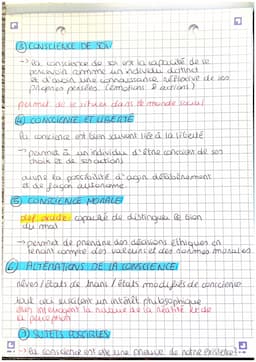 ③ CONSCIENCE DE SOI
→ la conscience de soi est la capacité de se
percevoir comme un individu distinct
et d'avoir une connaissance réflexive de ses
propres pensées. (émotions & actions)
permet de se situer dans le monde social
④ CONSCIENCE ET LIBERTÉ
la conscience est bien souvent liée à la liberté
→ permet à un individu d'être conscient de ses
choix et de ses actions
ouvre la possibilité d'agir délibérément
et de façon autonome
⑤ CONSCIENCE MORALE
def. exacte capacité de distinguer le bien
du mal
→ permet de prendre des décisions éthiques en
tenant compte des valeurs et des normes morales
⑥ ALTÉRATIONS DE LA CONSCIENCE
rêves / états de trans / états modifiés de conscience
tout ceci suscitent un intérêt philosophique
car interrogent la nature de la réalité et de
la perception
⑦ SUJETS POSSIBLES
→ la conscience est elle une preuve de notre existence?